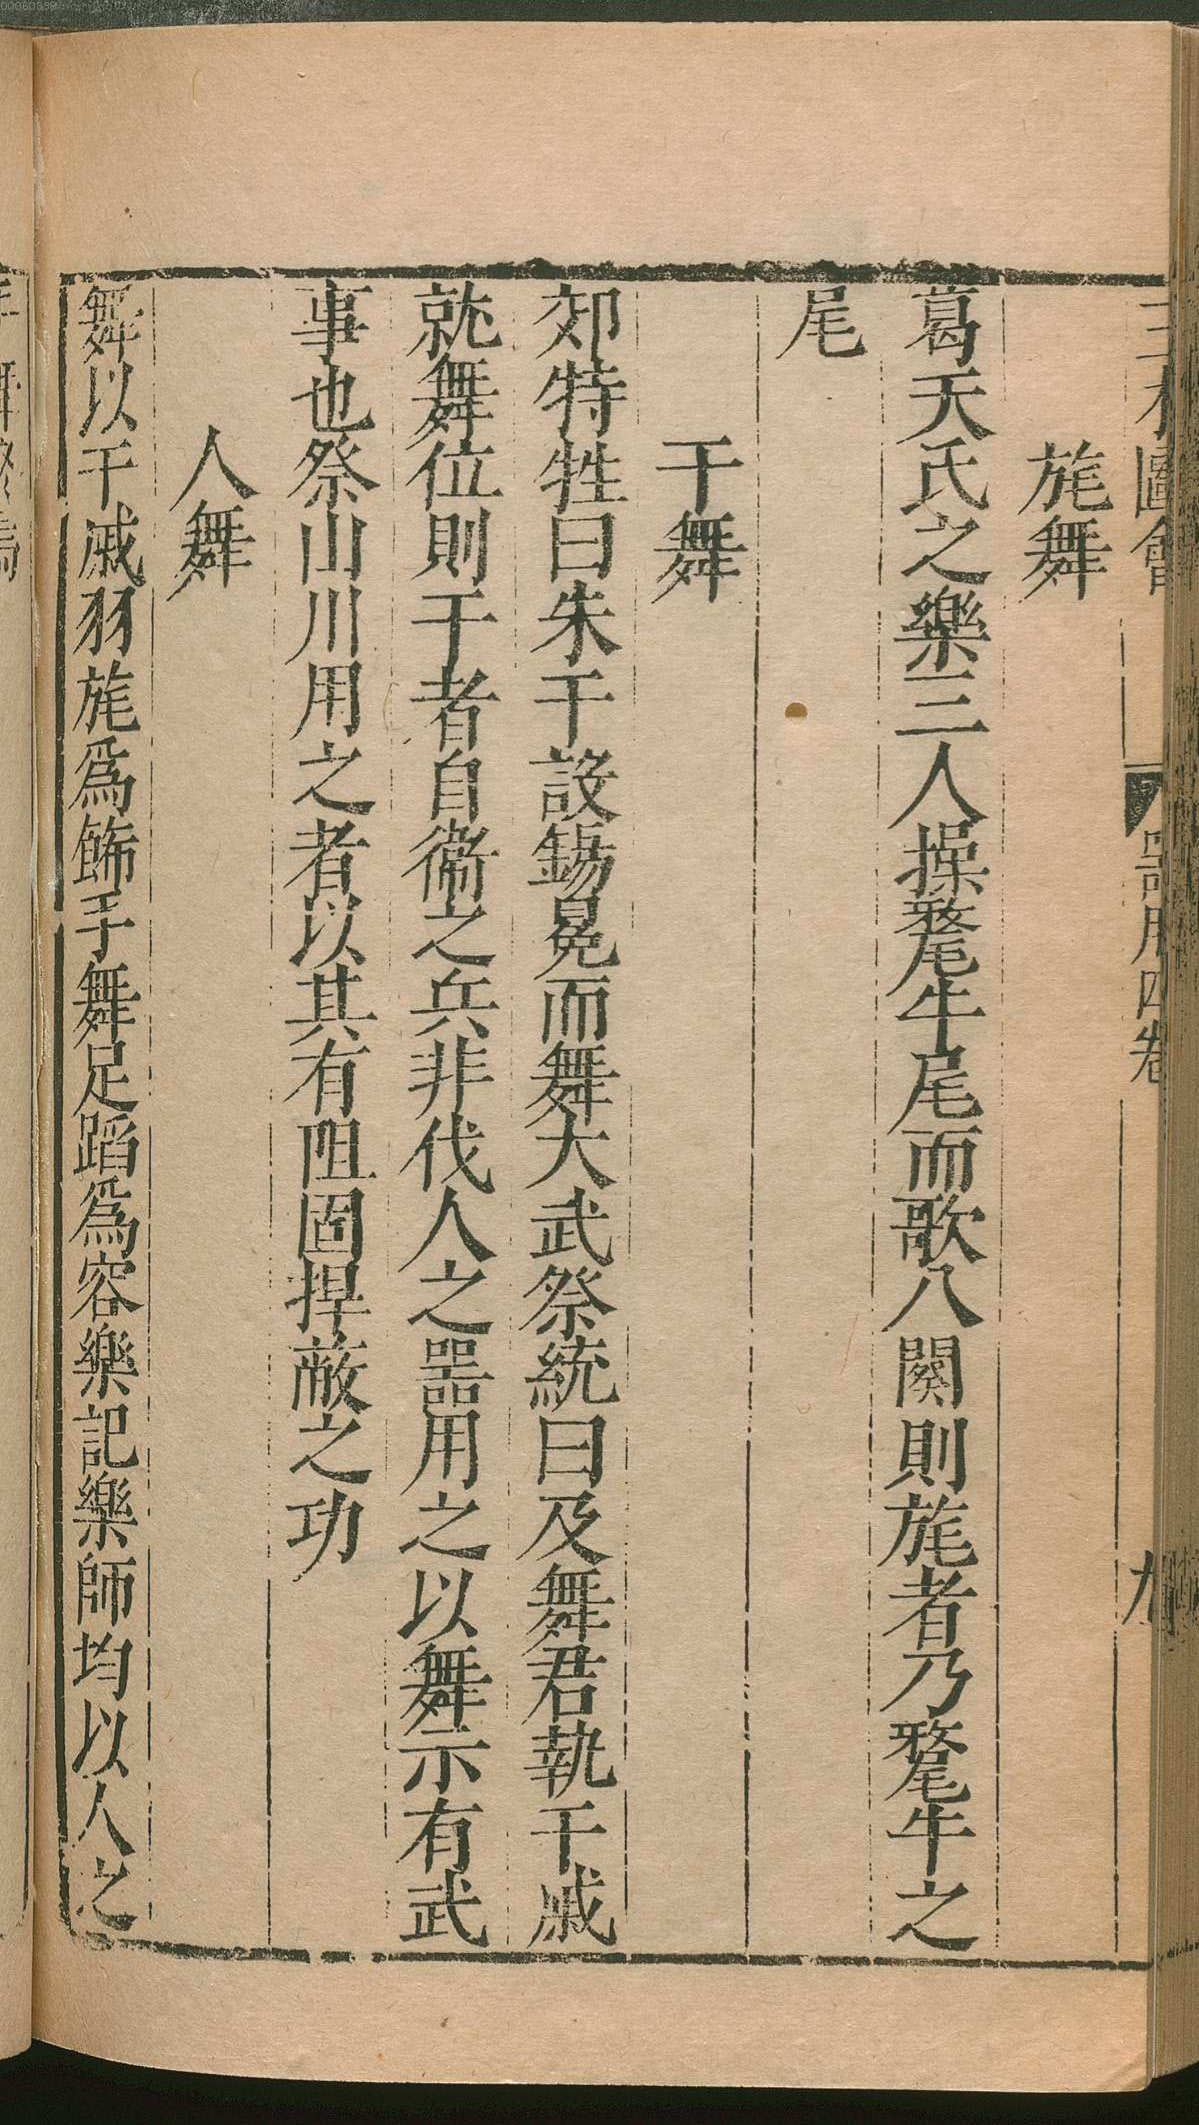 三才圖會 器用四卷 九
旄舞
葛天氏之樂三人操氂牛尾而歌八闋則旄者乃氂牛之
尾
干舞
郊特牲曰朱干設錫冕而舞大武祭統曰及舞君執干戚
就舞位則干者自衞之兵非伐人之噐用之以舞示有武
事也祭山川用之者以其有阻固捍敵之功
人舞
舞以干戚羽旄爲飾手舞足蹈爲容樂記樂師均以人之